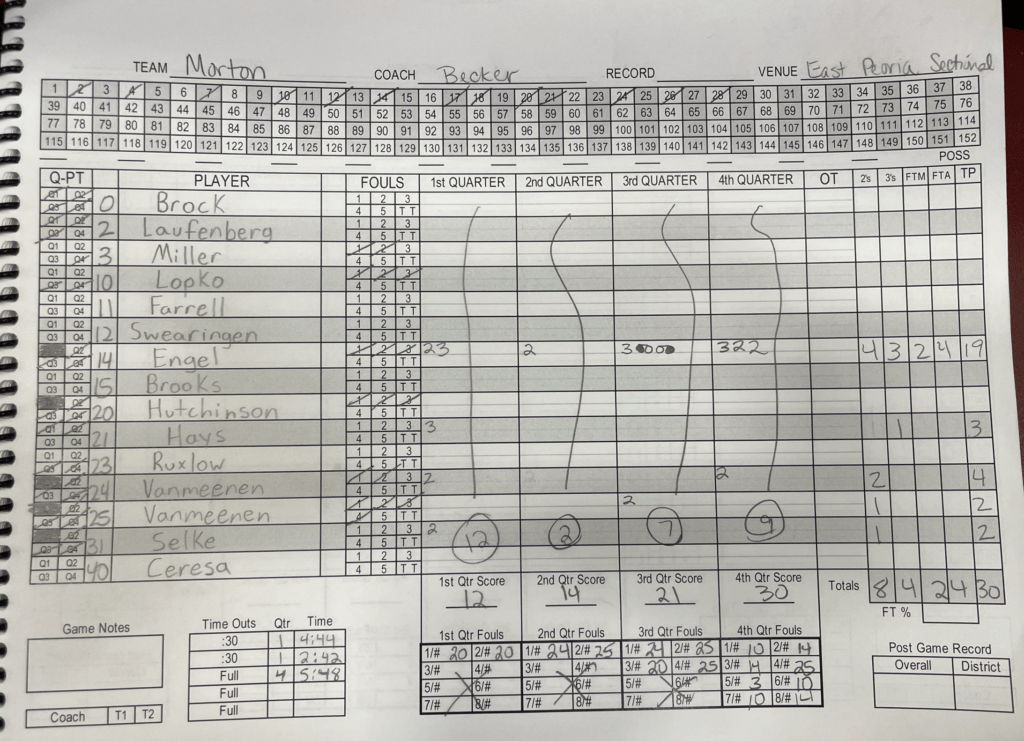 TEAM Morton COACH Becker RECORD VENUE East Peoria Sectional
1 2 3 4 5 6 7 8 9 10 11 12 13 14 15 16 17 18 19 20 21 22 23 24 25 26 27 28 29 30 31 32 33 34 35 36 37 38
39 40 41 42 43 44 45 46 47 48 49 50 51 52 53 54 55 56 57 58 59 60 61 62 63 64 65 66 67 68 69 70 71 72 73 74 75 76
77 78 79 80 81 82 83 84 85 86 87 88 89 90 91 92 93 94 95 96 97 98 99 100 101 102 103 104 105 106 107 108 109 110 111 112 113 114
115 116 117 118 119 120 121 122 123 124 125 126 127 128 129 130 131 132 133 134 135 136 137 138 139 140 141 142 143 144 145 146 147 148 149 150 151 152
POSS
Q-PT PLAYER FOULS 1st QUARTER 2nd QUARTER 3rd QUARTER 4th QUARTER OT 2's 3's FTM FTA TP
Q1 Q2 1 2 3
Q3 Q4 0 Brock 4 5 T T
Q1 Q2 1 2 3
Q3 Q4 2 Laufenberg 4 5 T T
Q1 Q2 1 2 3
Q3 Q4 3 Miller 4 5 T T
Q1 Q2 1 2 3
Q3 Q4 10 Lopko 4 5 T T
Q1 Q2 1 2 3
Q3 Q4 11 Farrell 4 5 T T
Q1 Q2 1 2 3
Q3 Q4 12 Swearingen 4 5 T T
Q2 1 2 3 23 2 3 322 4 3 2 4 19
Q3 Q4 14 Engel 4 5 T T
Q1 Q2 1 2 3
Q3 Q4 15 Brooks 4 5 T T
Q2 1 2 3
Q3 Q4 20 Hutchinson 4 5 T T
Q1 Q2 1 2 3 3 1 3
Q3 Q4 21 Hays 4 5 T T
Q1 Q2 1 2 3
Q3 Q4 23 Ruxlow 4 5 T T
Q2 1 2 3 2 2 2 4
Q3 Q4 24 Vanmeenen 4 5 T T
Q2 1 2 3 2 1 2
Q3 Q4 25 Vanmeenen 4 5 T T
Q2 1 2 3 2 12 2 7 9 1 2
Q3 Q4 31 Selke 4 5 T T
Q1 Q2 1 2 3
Q3 Q4 40 Ceresa 4 5 T T
1st Qtr Score 2nd Qtr Score 3rd Qtr Score 4th Qtr Score Totals 8 4 2 4 30
12 14 21 30
FT %
Game Notes
Time Outs Qtr Time
:30 1 4:44
:30 1 2:42
Full 4 5:48
Full
Full
Coach T1 T2
1st Qtr Fouls 2nd Qtr Fouls 3rd Qtr Fouls 4th Qtr Fouls
1/# 20 2/# 20 1/# 24 2/# 25 1/# 24 2/# 25 1/# 10 2/# 14
3/# 4/# 3/# 4/# 3/# 20 4/# 25 3/# 14 4/# 25
5/# 6/# 5/# 6/# 5/# 6/# 5/# 3 6/# 10
7/# 8/# 7/# 8/# 7/# 8/# 7/# 10 8/# 14
Post Game Record
Overall District